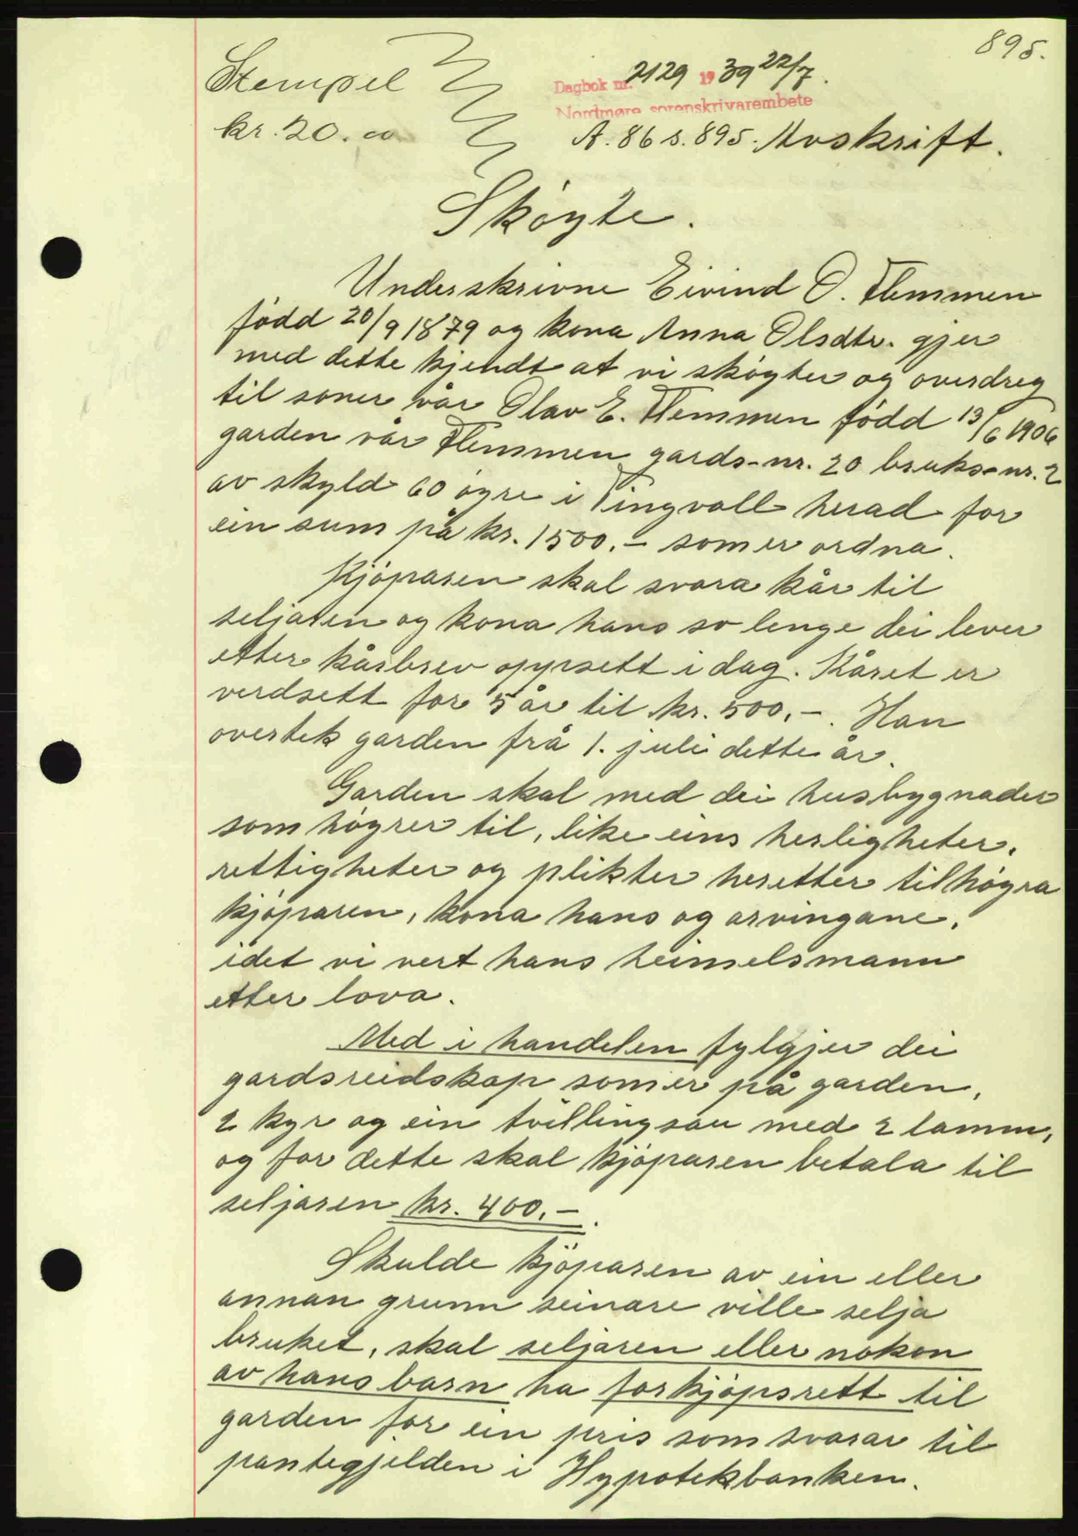 895.
Stempel
kr. 20.00
Dagbok nr. 2129 1939 22/7.
Nordmøre sorenskrivarembete
A. 86 s. 895. Avskrift.
Skøyte.
Underskrivne Eivind O. Flemmen
fødd 20/9 1879 og kona Anna Olsdtr. gjer
med dette kjendt at vi skøyter og overdreg
til soner vår Olav E. Flemmen fødd 13/6 1906
garden vår Flemmen gards-nr. 20 bruks-nr. 2
av skyld 60 øyre i Tingvoll herad for
ein sum på kr. 1500.- som er ordna.
Kjøparen skal svara kår til
seljaren og kona hans so lenge dei lever
etter kårbrev oppsett i dag. Kåret er
verdsett for 5 år til kr. 500.-. Han
overtek garden frå 1. juli dette år.
Garden skal med dei husbygnader
som høyrer til, like eins herligheter,
rettigheter og plikter heretter tilhøyra
kjøparen, kona hans og arvingane,
idet vi vert hans heimelsmann
etter lova.
Med i handelen fylgjer dei
gardsreidskap som er på garden,
2 kyr og ein tvillingsau med 2 lamm,
og for dette skal kjøparen betala til
seljaren kr. 400.-.
Skulde kjøparen av ein eller
annan grunn seinare ville selja
bruket, skal seljaren eller nokon
av hans barn ha forkjøpsrett til
garden for ein pris som svarar til
pantegjelden i Hypotekbanken.